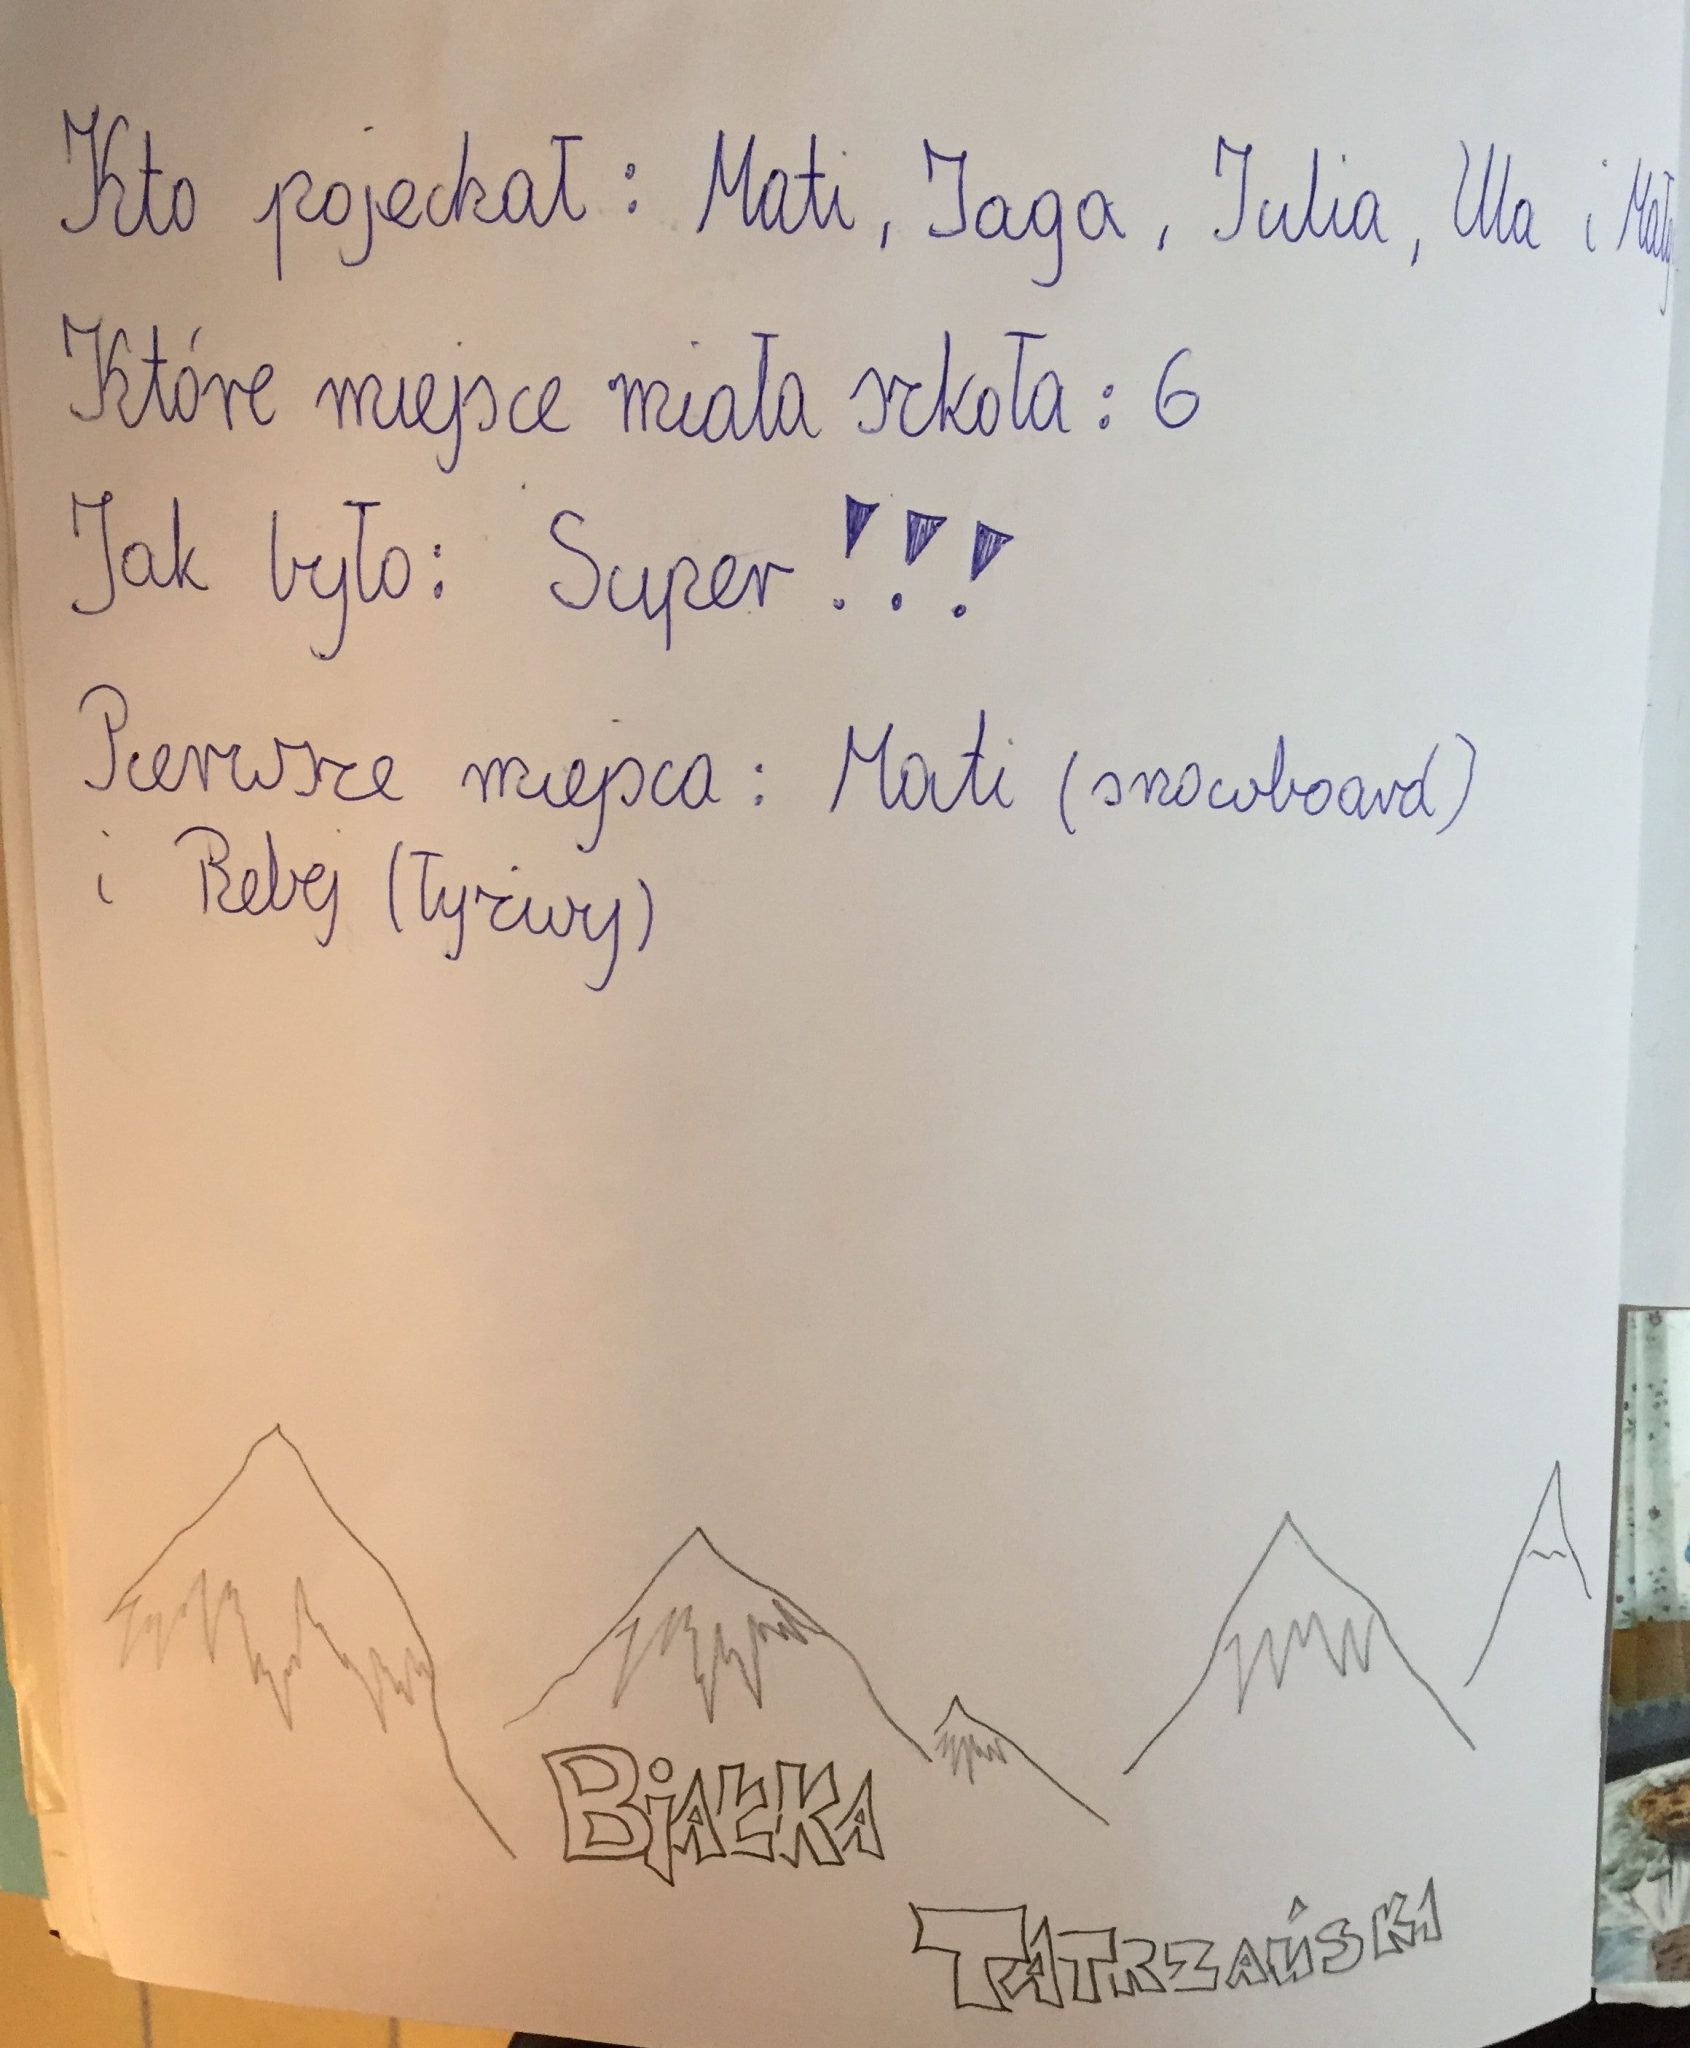 Kto pojechał: Mati, Jaga, Julia, Ula i
Które miejsce miała szkoła: 6
Jak było: Super!!!
Pierwsze miejsca: Mati (snowboard)
i Rebej (łyżwy)
BiAŁKA
TATRZAŃSKA